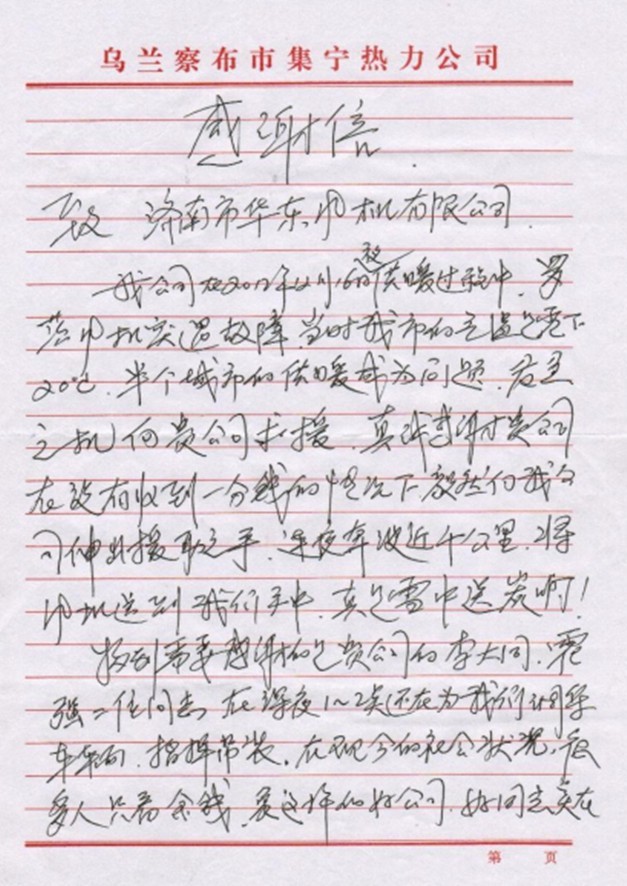 乌兰察布市集宁热力公司
感谢信
致 济南市华东风机有限公司
我公司在2012年12月16日夜供暖过程中,罗
茨风机突遇故障 当时我市的气温是零下
20℃.半个城市的供暖成为问题.
之机向贵公司求援.真诚感谢贵公司
在没有收到一分钱的情况下毅然向我公
司伸出援助之手.连夜奔波近千公里.将
风机送到我们手中.真是雪中送炭啊!
特别需要感谢的是贵公司的李大同.霍
强二位同志 在深夜1~2点还在为我们
车辆.指挥吊装.在现今的社会状况,很
多人只看金钱.象这样的好公司.好同志实在
第 页